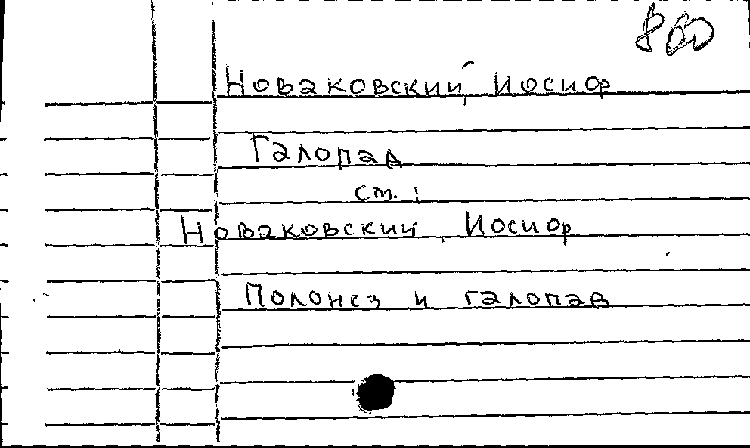 Новаковский, Иосиф
Галопад
см.:
Новаковский, Иосиф
Полонез и галопад